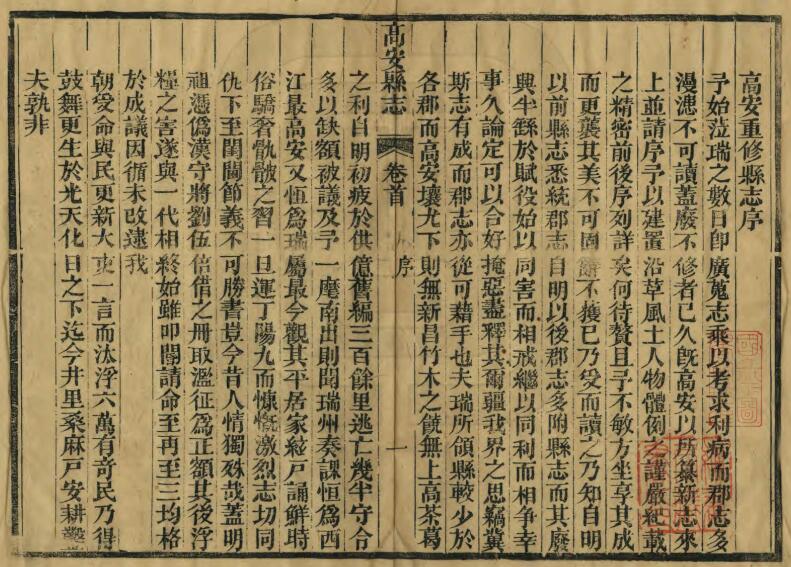 高安重修縣志序
予始涖瑞之數日即廣蒐志乘以考求利病而郡志多
漫漶不可讀蓋廢不修者已久旣高安以所纂新志來
上並請序予以建置沿草風土人物體例之謹嚴紀載
之精密前後序列詳矣何待贅且予不敏方坐享其成
而更襲其美不可固辭不獲已乃受而讀之乃知自明
以前縣志悉統郡志自明以後郡志多附縣志而其廢
興半繇於賦役始以同害而相戒繼以同利而相爭幸
事久論定可以合好掩惡盡釋其爾疆我界之思竊冀
斯志有成而郡志亦從可藉手也夫瑞所領縣較少於
各郡而高安壤尤下則無新昌竹木之饒無上高茶葛
高安縣志
卷首
序
一
之利自明初疲於供億舊編三百餘里逃亡幾半守令
多以缺額被議及予一麾南出則聞瑞州奏課恒爲西
江最高安又恒爲瑞屬最今觀其平居家絃戸誦鮮時
俗驕奢骩骳之習一旦運丁陽九而慷慨激烈志切同
仇下至閨闥節義不可勝書豈今昔人情獨殊哉蓋明
祖憑僞漢守將劉伍倍借之冊取濫征爲正額其後浮
糧之害遂與一代相終始雖叩閽請命至再至三均格
於成議因循未改逮我
朝受命與民更新大吏一言而汰浮六萬有奇民乃得
鼓舞更生於光天化日之下迄今井里桑麻戸安耕鑿
夫孰非